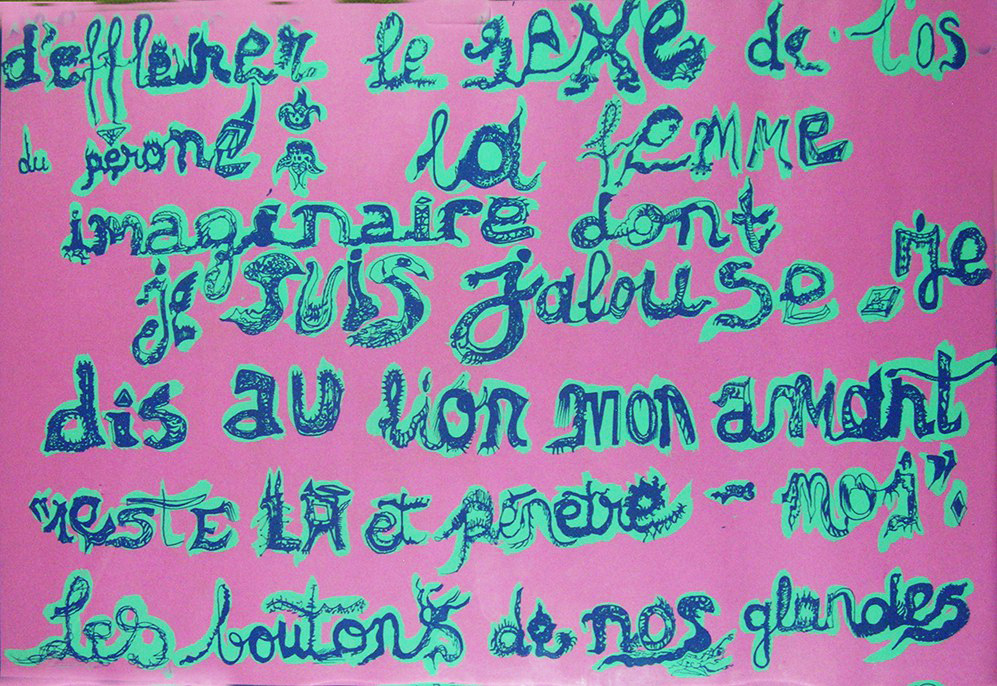 d'effleurer le sexe de l'os
du péroné : la femme
imaginaire dont
je suis jalouse. je
dis au lion mon amant
"reste LÀ et pénètre - moi".
les boutons de nos glandes